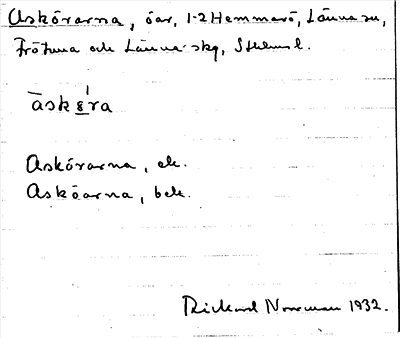 Askörarna, öar, 1-2 Hemmarö, Länna sn,
Frötuna och Länna skg, Sthlms l.
āskęra
Askörarna, ek.
Asköarna, bek.
Rickard Norrman 1932.